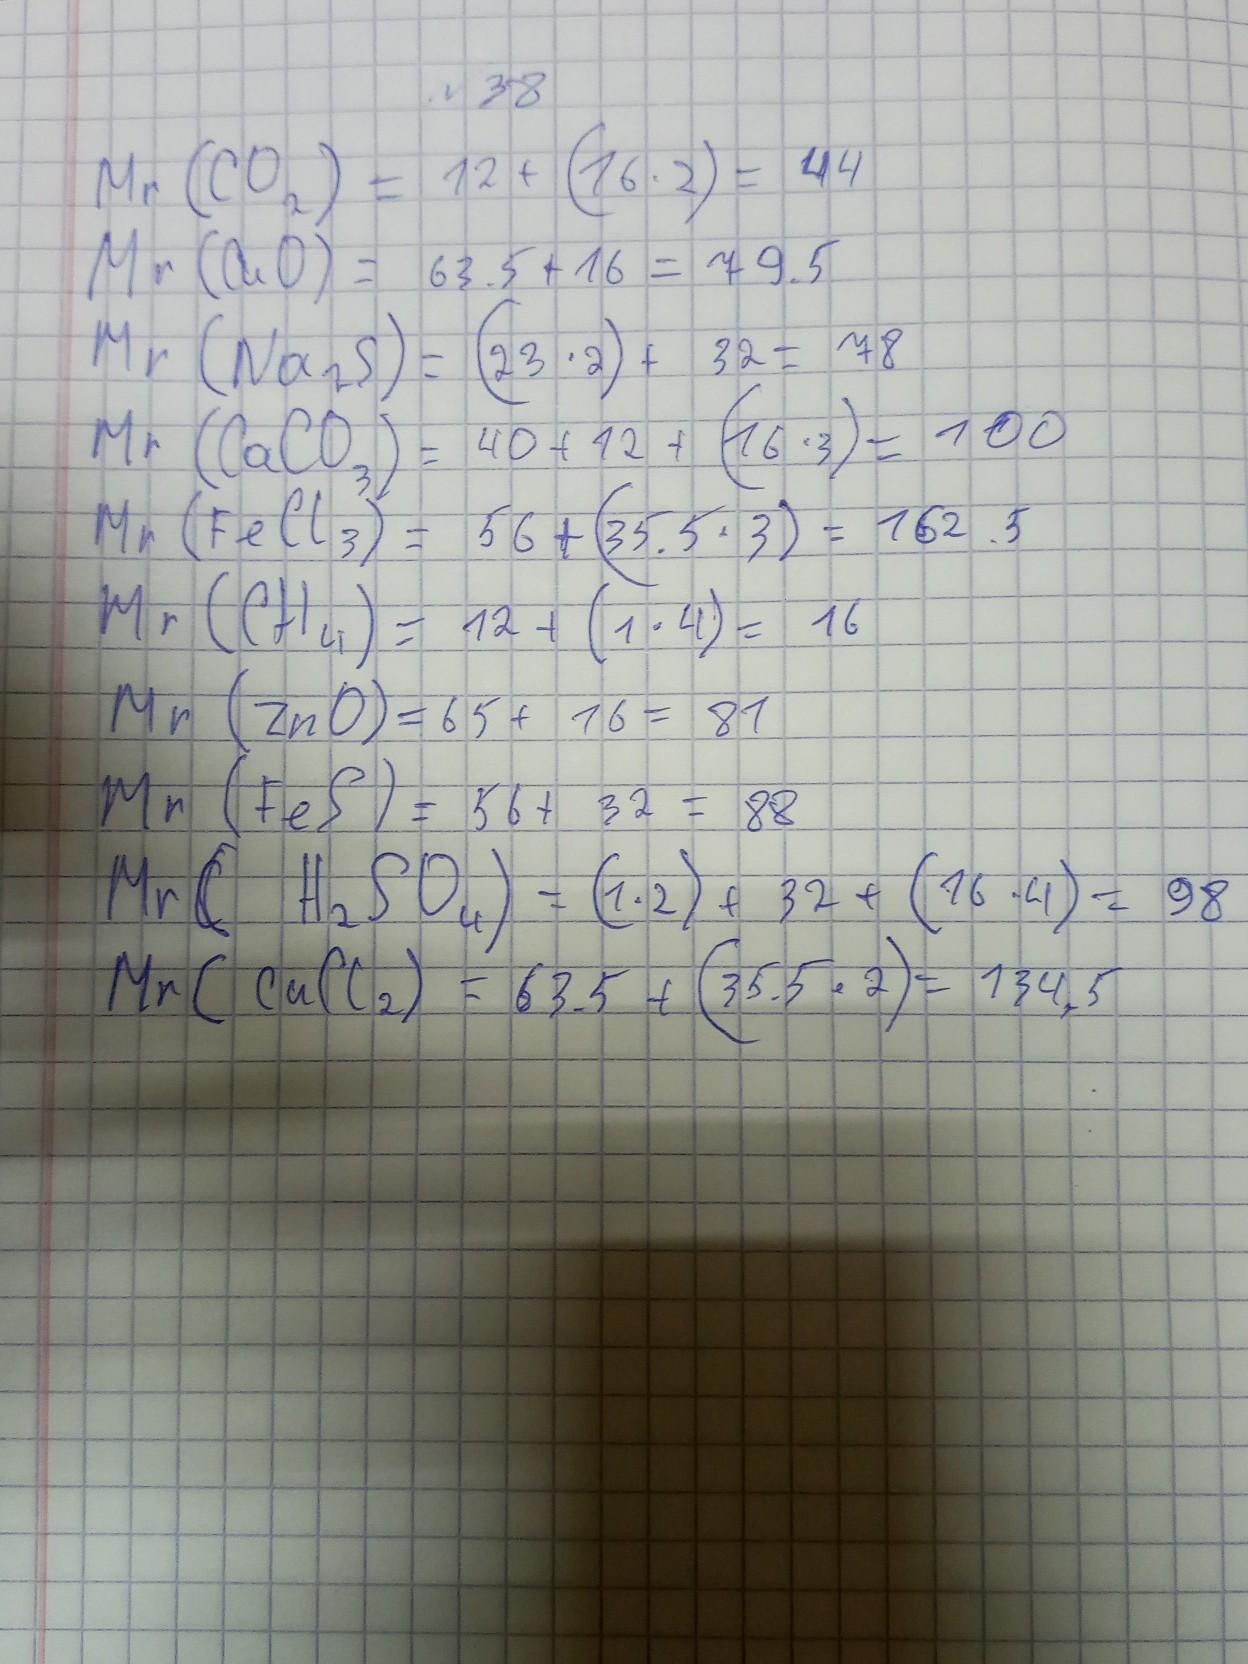 № 38
Mr (CO₂) = 12 + (16 · 2) = 44
Mr (CuO) = 63.5 + 16 = 79.5
Mr (Na₂S) = (23 · 2) + 32 = 78
Mr (CaCO₃) = 40 + 12 + (16 · 3) = 100
Mr (FeCl₃) = 56 + (35.5 · 3) = 162.5
Mr (CH₄) = 12 + (1 · 4) = 16
Mr (ZnO) = 65 + 16 = 81
Mr (FeS) = 56 + 32 = 88
Mr ( H₂SO₄) = (1 · 2) + 32 + (16 · 4) = 98
Mr ( CuCl₂) = 63.5 + (35.5 · 2) = 134,5